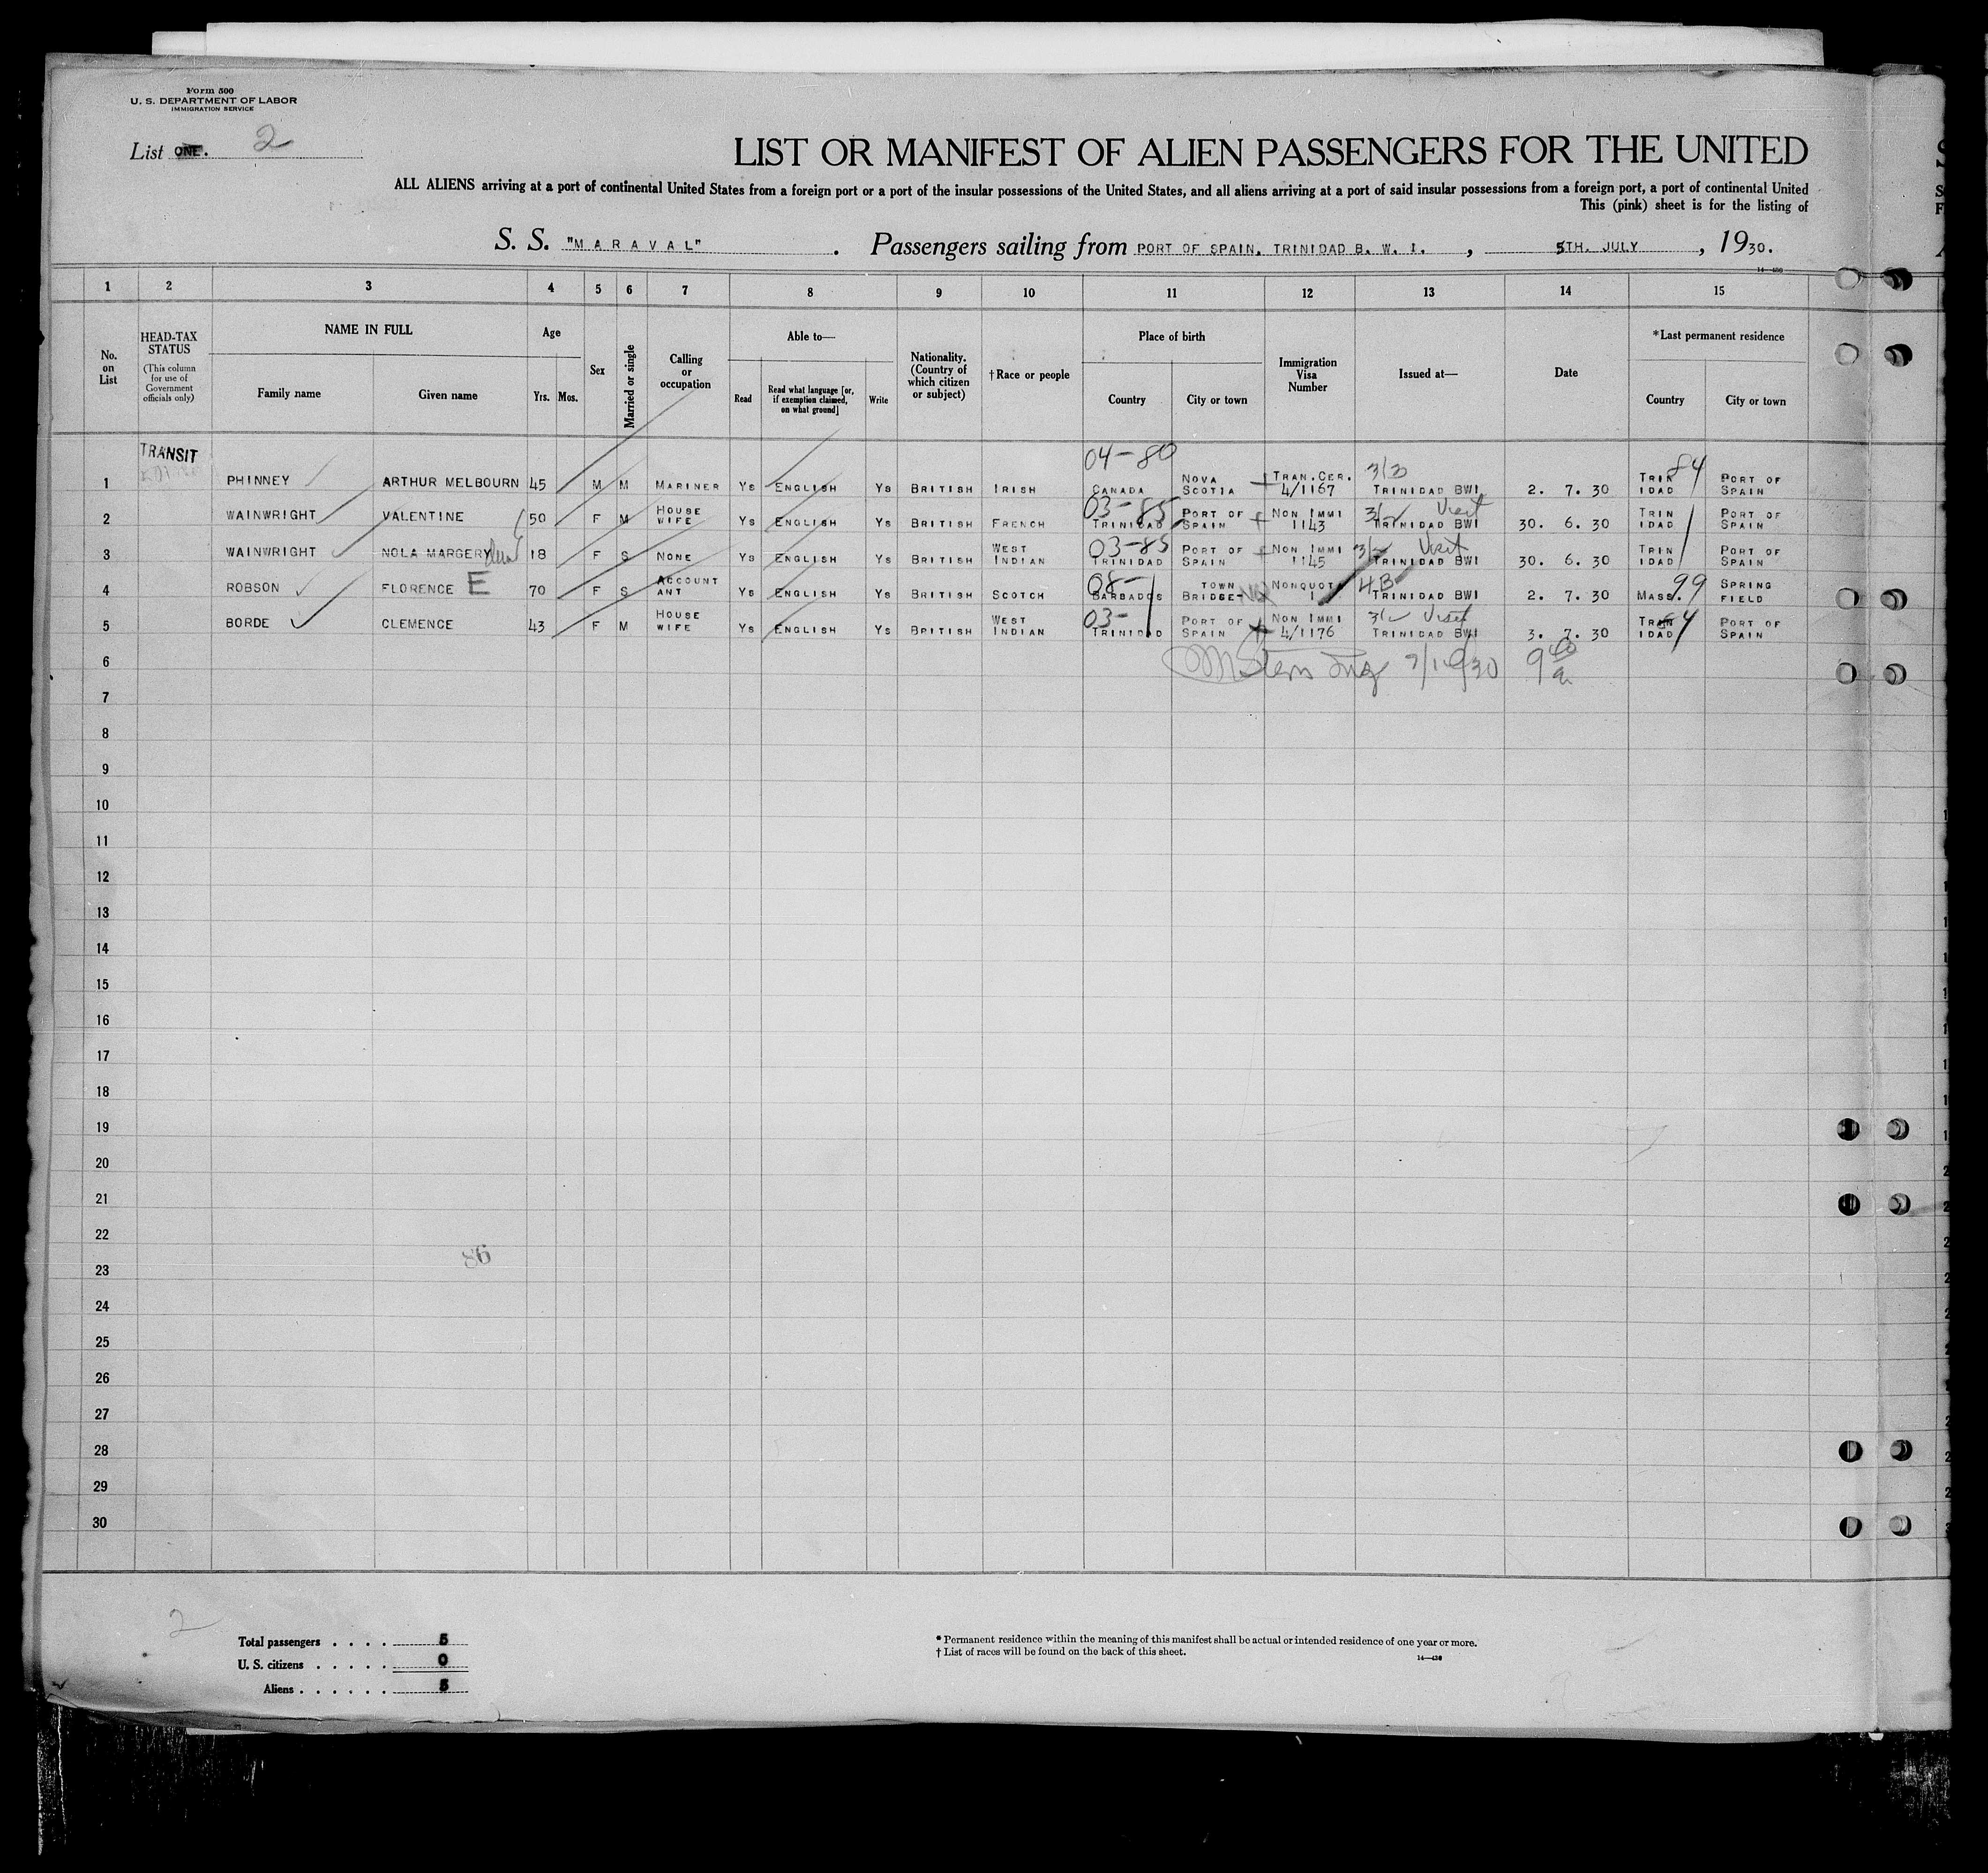 Form 500
U. S. DEPARTMENT OF LABOR
IMMIGRATION SERVICE
List ONE. 2
LIST OR MANIFEST OF ALIEN PASSENGERS FOR THE UNITED
ALL ALIENS arriving at a port of continental United States from a foreign port or a port of the insular possessions of the United States, and all aliens arriving at a port of said insular possessions from a foreign port, a port of continental United
This (pink) sheet is for the listing of
S. S. "MARAVAL" . Passengers sailing from PORT OF SPAIN, TRINIDAD B. W. I. , 5TH. JULY , 1930.
14—430
1 2 3 4 5 6 7 8 9 10 11 12 13 14 15
No. on List
HEAD-TAX STATUS
(This column for use of Government officials only)
NAME IN FULL
Family name Given name
Age
Yrs. Mos.
Sex
Married or single
Calling or occupation
Able to—
Read
Read what language [or, if exemption claimed, on what ground]
Write
Nationality. (Country of which citizen or subject)
†Race or people
Place of birth
Country City or town
Immigration Visa Number
Issued at—
Date
*Last permanent residence
Country City or town
TRANSIT
04-80 3/3 84
1 PHINNEY ARTHUR MELBOURN 45 M M MARINER YS ENGLISH YS BRITISH IRISH CANADA NOVA SCOTIA TRAN.CER. 4/1167 TRINIDAD BWI 2. 7. 30 TRIN IDAD PORT OF SPAIN
03-85 Visit
2 WAINWRIGHT VALENTINE 50 F M HOUSE WIFE YS ENGLISH YS BRITISH FRENCH TRINIDAD PORT OF SPAIN NON IMMI 1143 TRINIDAD BWI 30. 6. 30 TRIN IDAD PORT OF SPAIN
03-85 Visit
3 WAINWRIGHT NOLA MARGERY 18 F S NONE YS ENGLISH YS BRITISH WEST INDIAN TRINIDAD PORT OF SPAIN NON IMMI 1145 TRINIDAD BWI 30. 6. 30 TRIN IDAD PORT OF SPAIN
08- 4B 99
4 ROBSON FLORENCE E 70 F S ACCOUNT ANT YS ENGLISH YS BRITISH SCOTCH BARBADOS TOWN BRIDGE- NONQUOTA 1 TRINIDAD BWI 2. 7. 30 MASS. SPRING FIELD
03- Visit
5 BORDE CLEMENCE 43 F M HOUSE WIFE YS ENGLISH YS BRITISH WEST INDIAN TRINIDAD PORT OF SPAIN NON IMMI 4/1176 TRINIDAD BWI 3. 7. 30 TRIN IDAD PORT OF SPAIN
6
7
8
9
10
11
12
13
14
15
16
17
18
19
20
21
22
23
24
25
26
27
28
29
30
86
2
Total passengers . . . . 5
U. S. citizens . . . . . 0
Aliens . . . . . . 5
* Permanent residence within the meaning of this manifest shall be actual or intended residence of one year or more.
† List of races will be found on the back of this sheet.
14—430